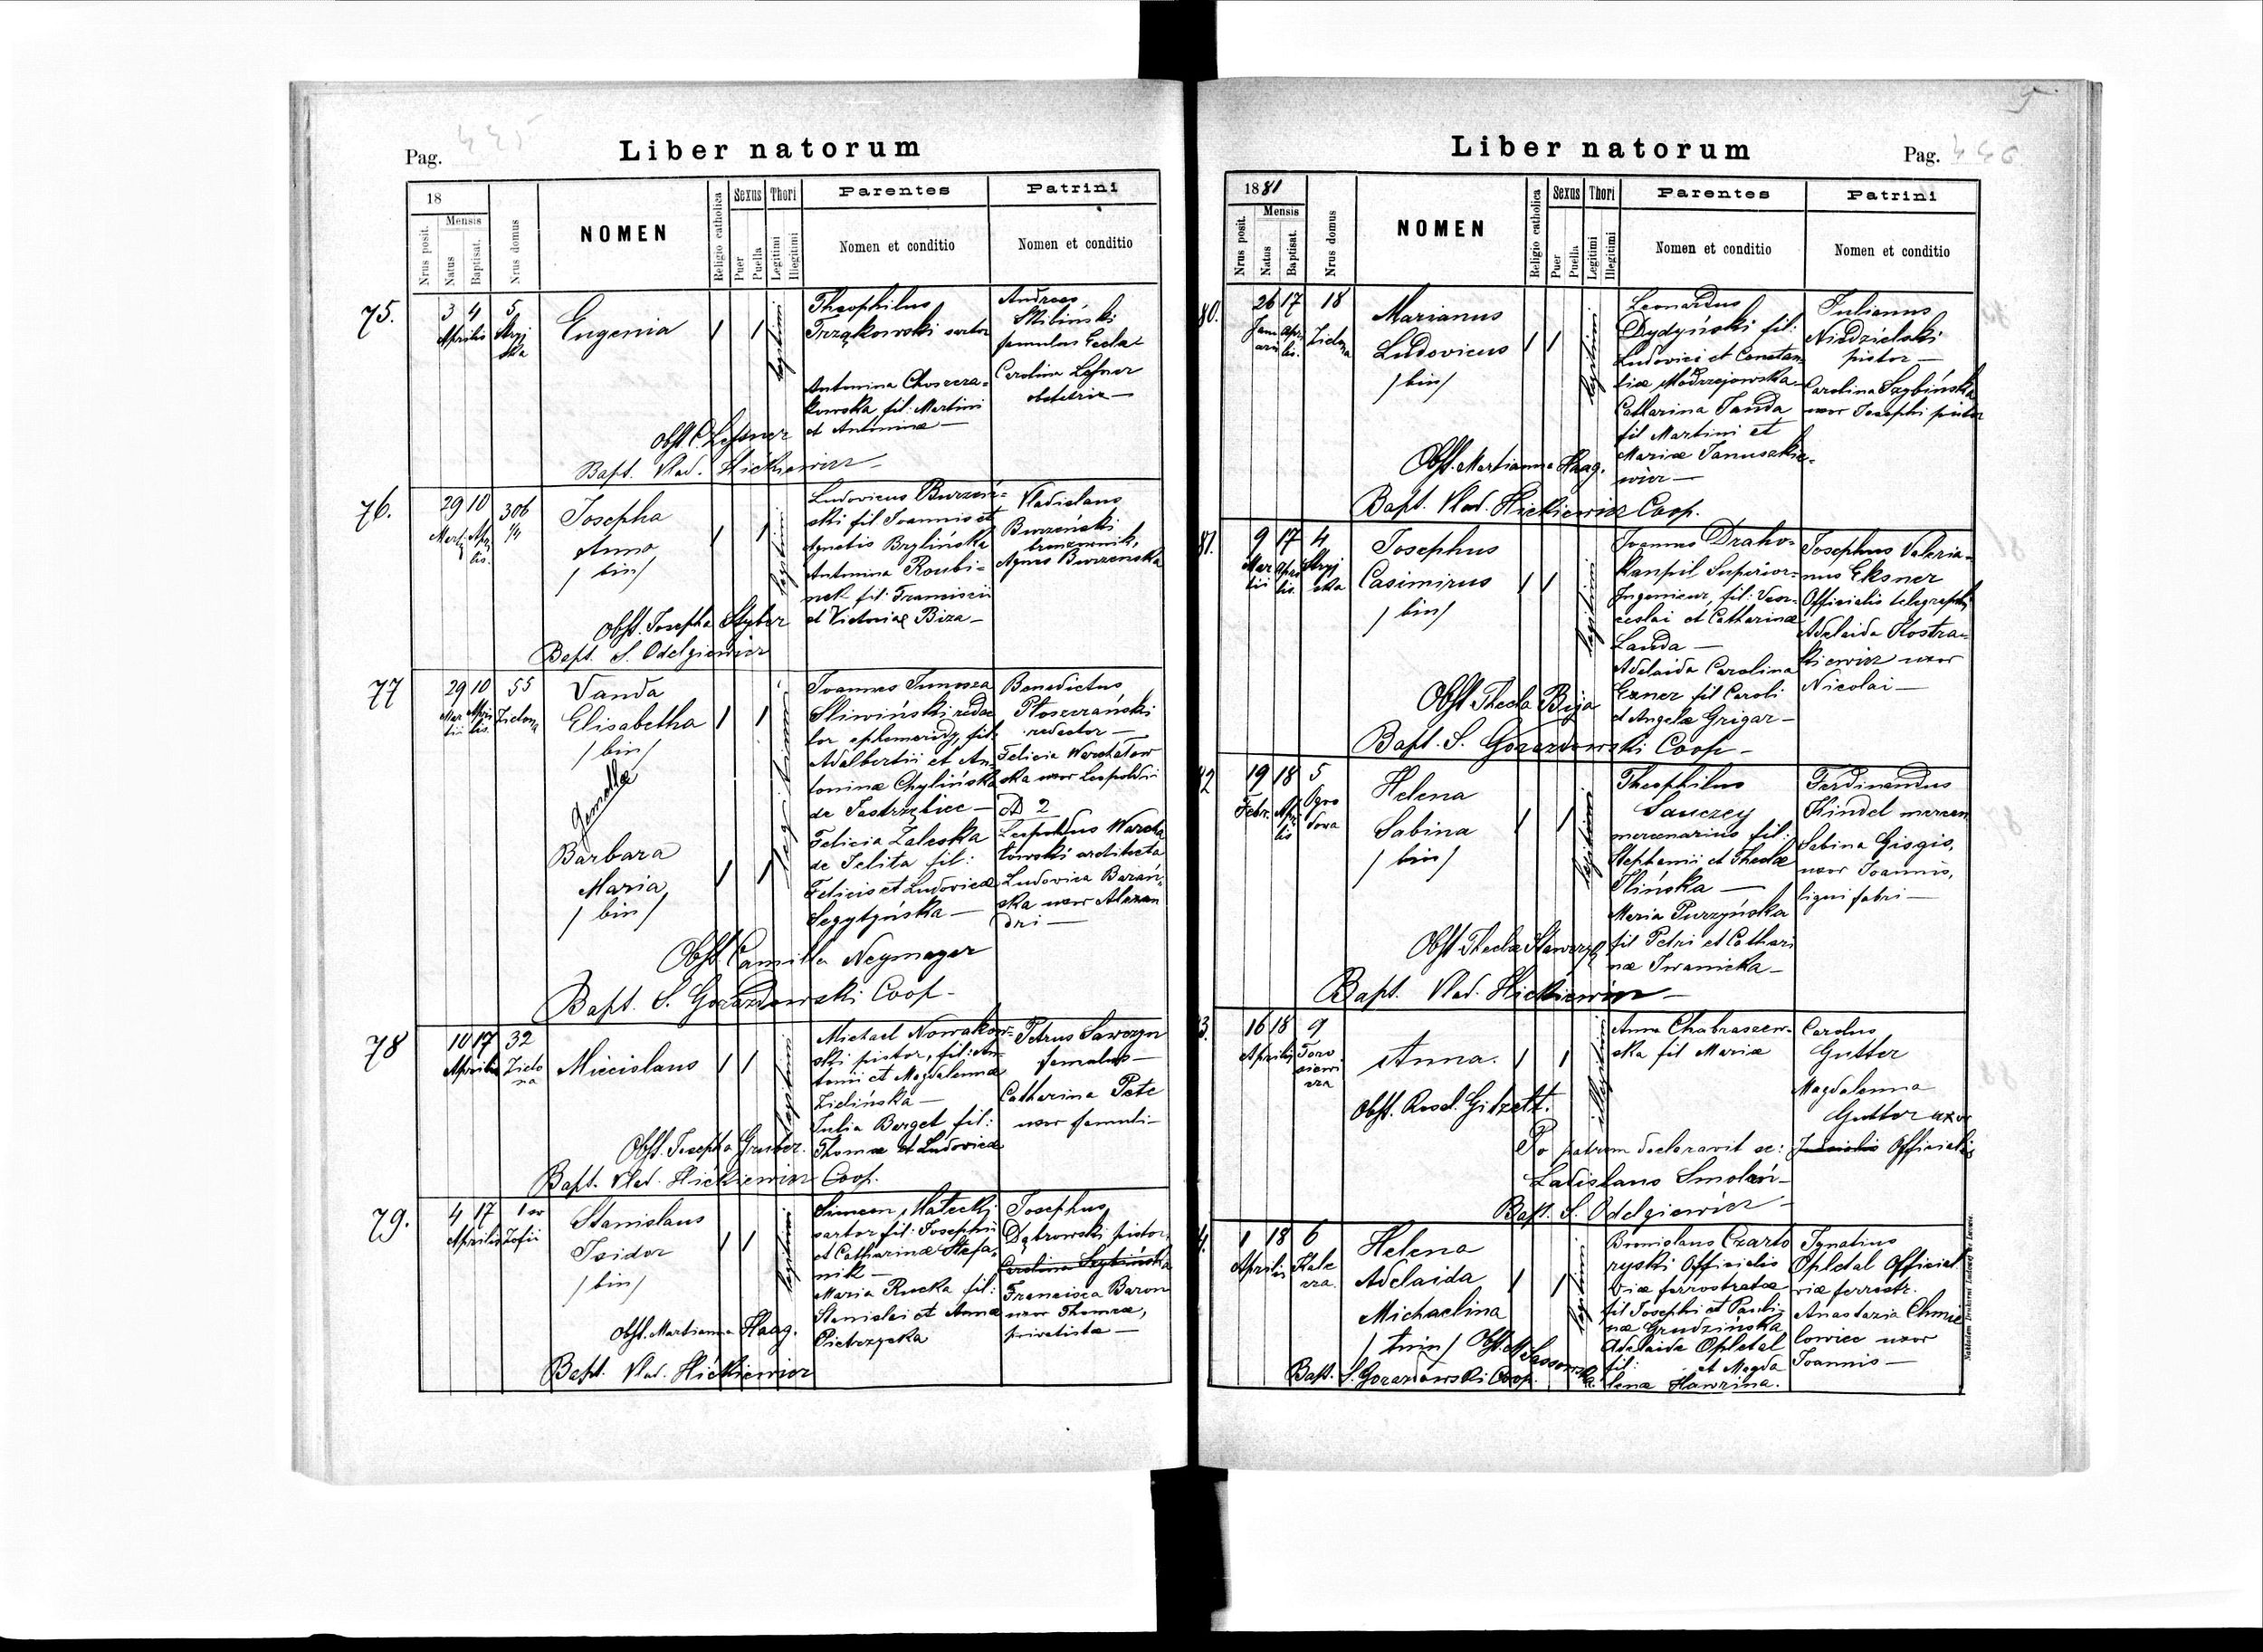 Pag. 445
Liber natorum
18
Mensis
Nrus posit.
Natus
Baptisat.
Nrus domus
NOMEN
Religio catholica
Sexus
Puer
Puella
Thori
Legitimi
Illegitimi
Parentes
Nomen et conditio
Patrini
Nomen et conditio
75.
3 4 5
Aprilis Stryj
ska
Eugenia
legitimi
Theophilus
Trząkowski sartor
Antonina
kowska fil: Martini
et Antoninæ —
Andreas
famulus
Carolina Lessner
obstetrix —
Obst. C. Lessner
Bapt. Vlad. Hićkiewicz —
76.
29 10 306
1/4
Martii Apri
lis.
Josepha
Anna
/ bin /
legitimi
Ludovicus Burzeń-
ski fil Joannis et
Agnetis Brylińska
Antonina Roubi-
nek fil: Francisci
et Victoriæ Biza —
Vladislaus
Burzeński
Agnes Burzenska
Obst. Josepha Styber
Bapt. S. Odelgiewicz
77
29 10 55
Mar Apri Zielona
tii lis.
Vanda
Elisabetha
/ bin /
Gemellæ
Barbara
Maria
/ bin /
legitimi
Joannes Junosza
Śliwiński redac
tor fil.
Adalbertii et An-
toninæ Chylińska
de Jastrzębiec —
Felicia Zaleska
de Jelita fil:
Felicis et Ludovicæ
—
Benedictus
Płoszczański
redactor —
Felicia Warchałow
ska uxor Leopoldi
AD 2
Leopoldus Warcha
łowski architecta
Ludovica Barań-
ska uxor Alexan
dri —
Obst. Camilla Neymayer
Bapt. S. Gorazdowski Coop —
78
10 17 32
Aprilis Zielo
na
Miecislaus
legitimi
Michael Nowakow-
ski pistor, fil: An-
tonii et Magdalenæ
Zielińska —
Julia Berget fil:
Thomæ et Ludovicæ
Petrus Sawczyn
famulus —
Catharina Petc
uxor famuli —
Obst. Josepha Gruber.
Bapt. Vlad. Hićkiewicz Coop.
79.
4 17
Aprilis Zofii
Stanislaus
Isidor
/ bin /
legitimi
Simeon Małecki
sartor fil: Josephi
et Catharinæ Stefa-
nik —
Maria Rucka fil:
Stanislai et Annæ
Pietrzycka
Josephus
Dąbrowski pistor,
Carolina Szybińska
Francisca Baron
uxor Thomæ,
privatista —
Obst. Martianna Haag.
Bapt. Vlad. Hićkiewicz
Liber natorum
Pag. 446
1881
Mensis
Nrus posit.
Natus
Baptisat.
Nrus domus
NOMEN
Religio catholica
Sexus
Puer
Puella
Thori
Legitimi
Illegitimi
Parentes
Nomen et conditio
Patrini
Nomen et conditio
80.
26 17 18
Janu Apri Zielona
arii lis.
Marianus
Ludovicus
/ bin /
legitimi
Leonardus
Dydyński fil:
Ludovici et Constan
tiæ Modrzejowska
Catharina Janda
fil Martini et
Mariæ Januszkie-
wicz —
Julianus
Niedzielski
pistor —
Carolina Szybińska
uxor Josephi pistor
Obst. Martianna Haag.
Bapt. Vlad. Hićkiewicz Coop.
81.
9 17 4
Mar Apri Stryj
tii lis. ska
Josephus
Casimirus
/ bin /
legitimi
Joannes Draho-
Superior-
Ingenieur, fil:
ceslai et Catharinæ
Landa —
Adelaida Carolina
Exner fil Caroli
et Angelæ Grigar —
Josephus Valeria-
nus Eksner
Officialis telegraph
Adelaida Kostra-
kiewicz uxor
Nicolai —
Obst Thecla Beja
Bapt. S. Gorazdowski Coop —
82
19 18 5
Febr. Apri Ogro
lis dova
Helena
Sabina
/ bin /
legitimi
Theophilus
Sauczey
mercenarius fil:
Stephanii et Theclæ
Ilińska —
Maria Purzyńska
fil Petri et Cathari
næ Iwanicka —
Ferdinandus
Kindel mercen
Sabina Gisgis,
uxor Joannis,
ligni fabri —
Obst. Thecla
Bapt. Vlad. Hićkiewicz —
3.
16 18 9
Aprilis Toro
siewi
cza
Anna.
illegitimi
Anna Chabraszew-
ska fil Mariæ
Carolus
Gutter
Magdalenna
Guttor uxor
Officialis
Obst. Rosal. Gitzelt.
Po patrem declaravit se:
Ladislaus Smoleń —
Bapt. S. Odelgiewicz —
4.
1 18 6
Aprilis Kale
cza.
Helena
Adelaida
Michaelina
/ trin /
legitimi
Bronislaus Czarto
ryski Officialis
viæ ferrostratæ
fil Josephi et Pauli-
næ Grudzińska
Adelaida Opletal
fil: et Magda
lenæ Hawrina.
Ignatius
Opletal Official
viæ ferrostr.
Anastazia Chmie
lowiec uxor
Joannis —
Obst. M. Sassowska.
Bapt. S. Gorazdowski Coop.